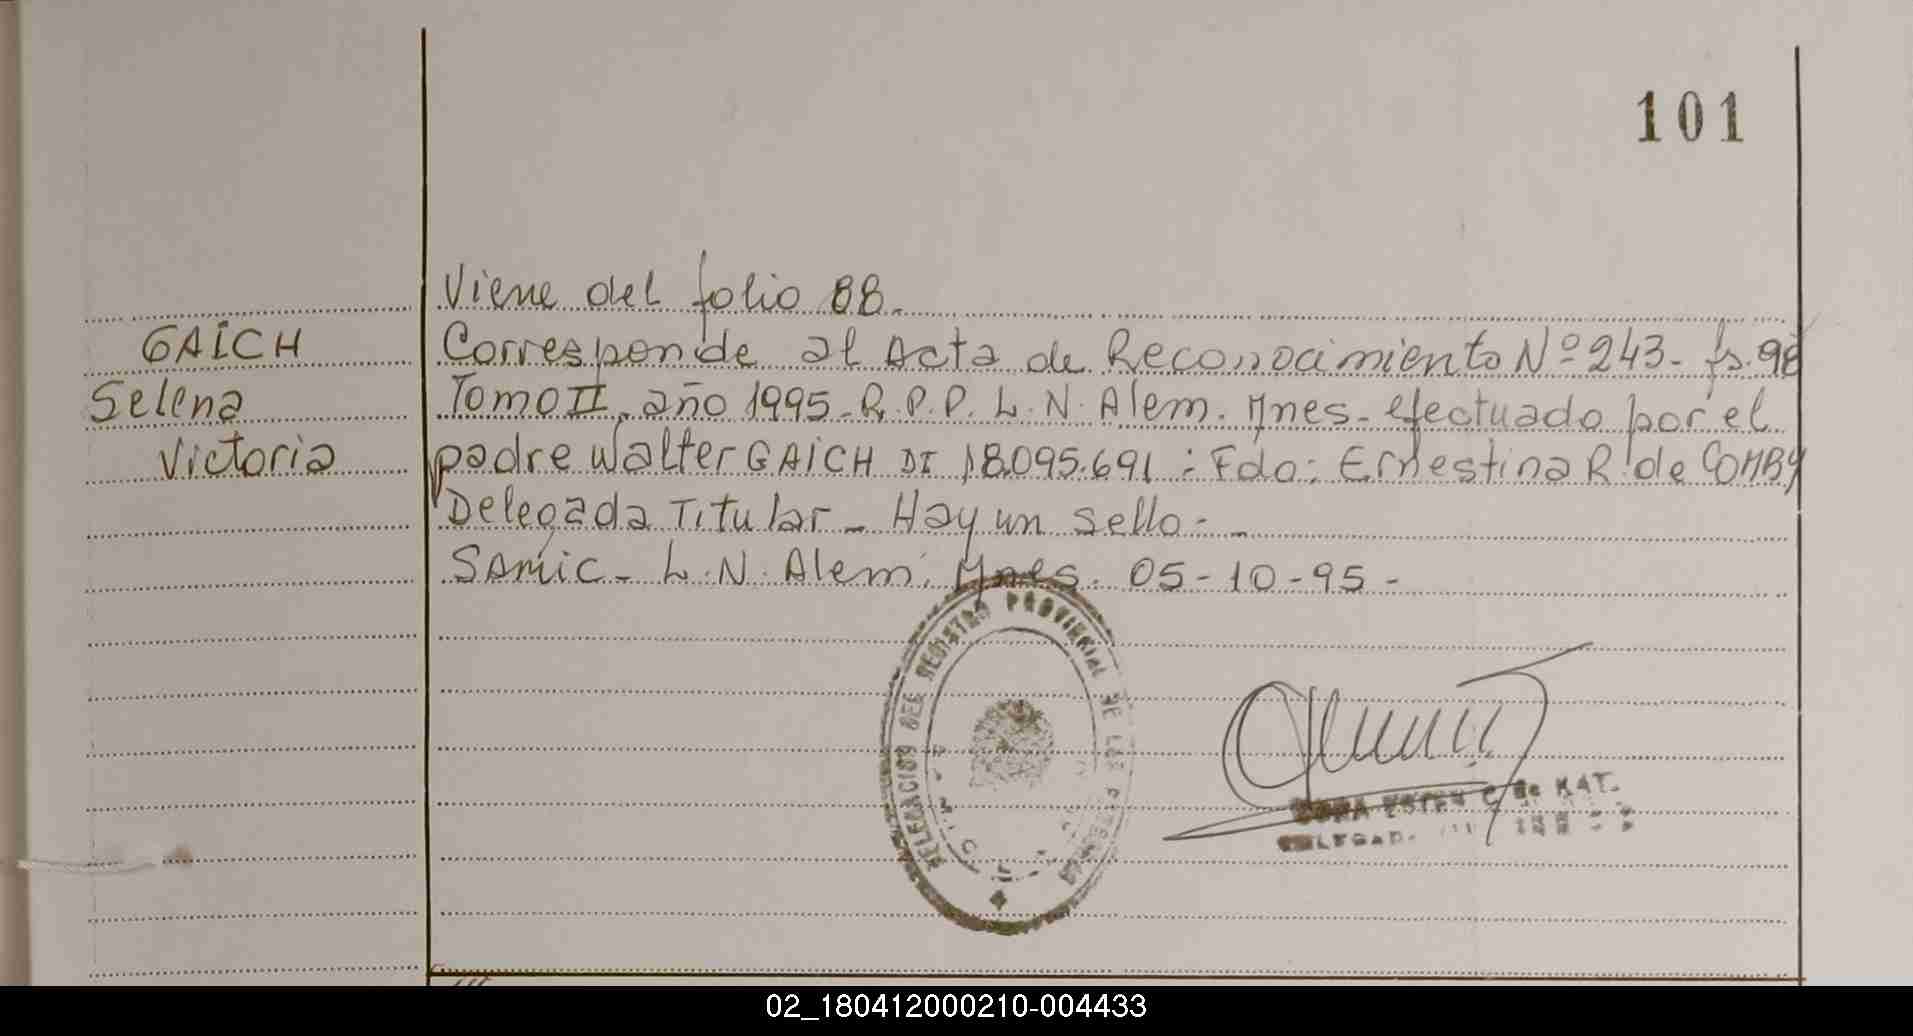 101
Viene del folio 88.
GAICH
Corresponde al Acta de Reconocimiento Nº 243- fs. 98
Selena
Tomo II. año 1995- R.P.P. L.N. Alem. Mnes- efectuado por el
Victoria
padre Walter GAICH DI 18.095.691 : Fdo: Ernestina R de COMBY
Delegada Titular - Hay un sello - -
SAMIC - L.N. Alem. Mnes. 05-10-95-
DELEGACION DEL REGISTRO PROVINCIAL DE LAS PERSONAS
de KAT.
02_180412000210-004433